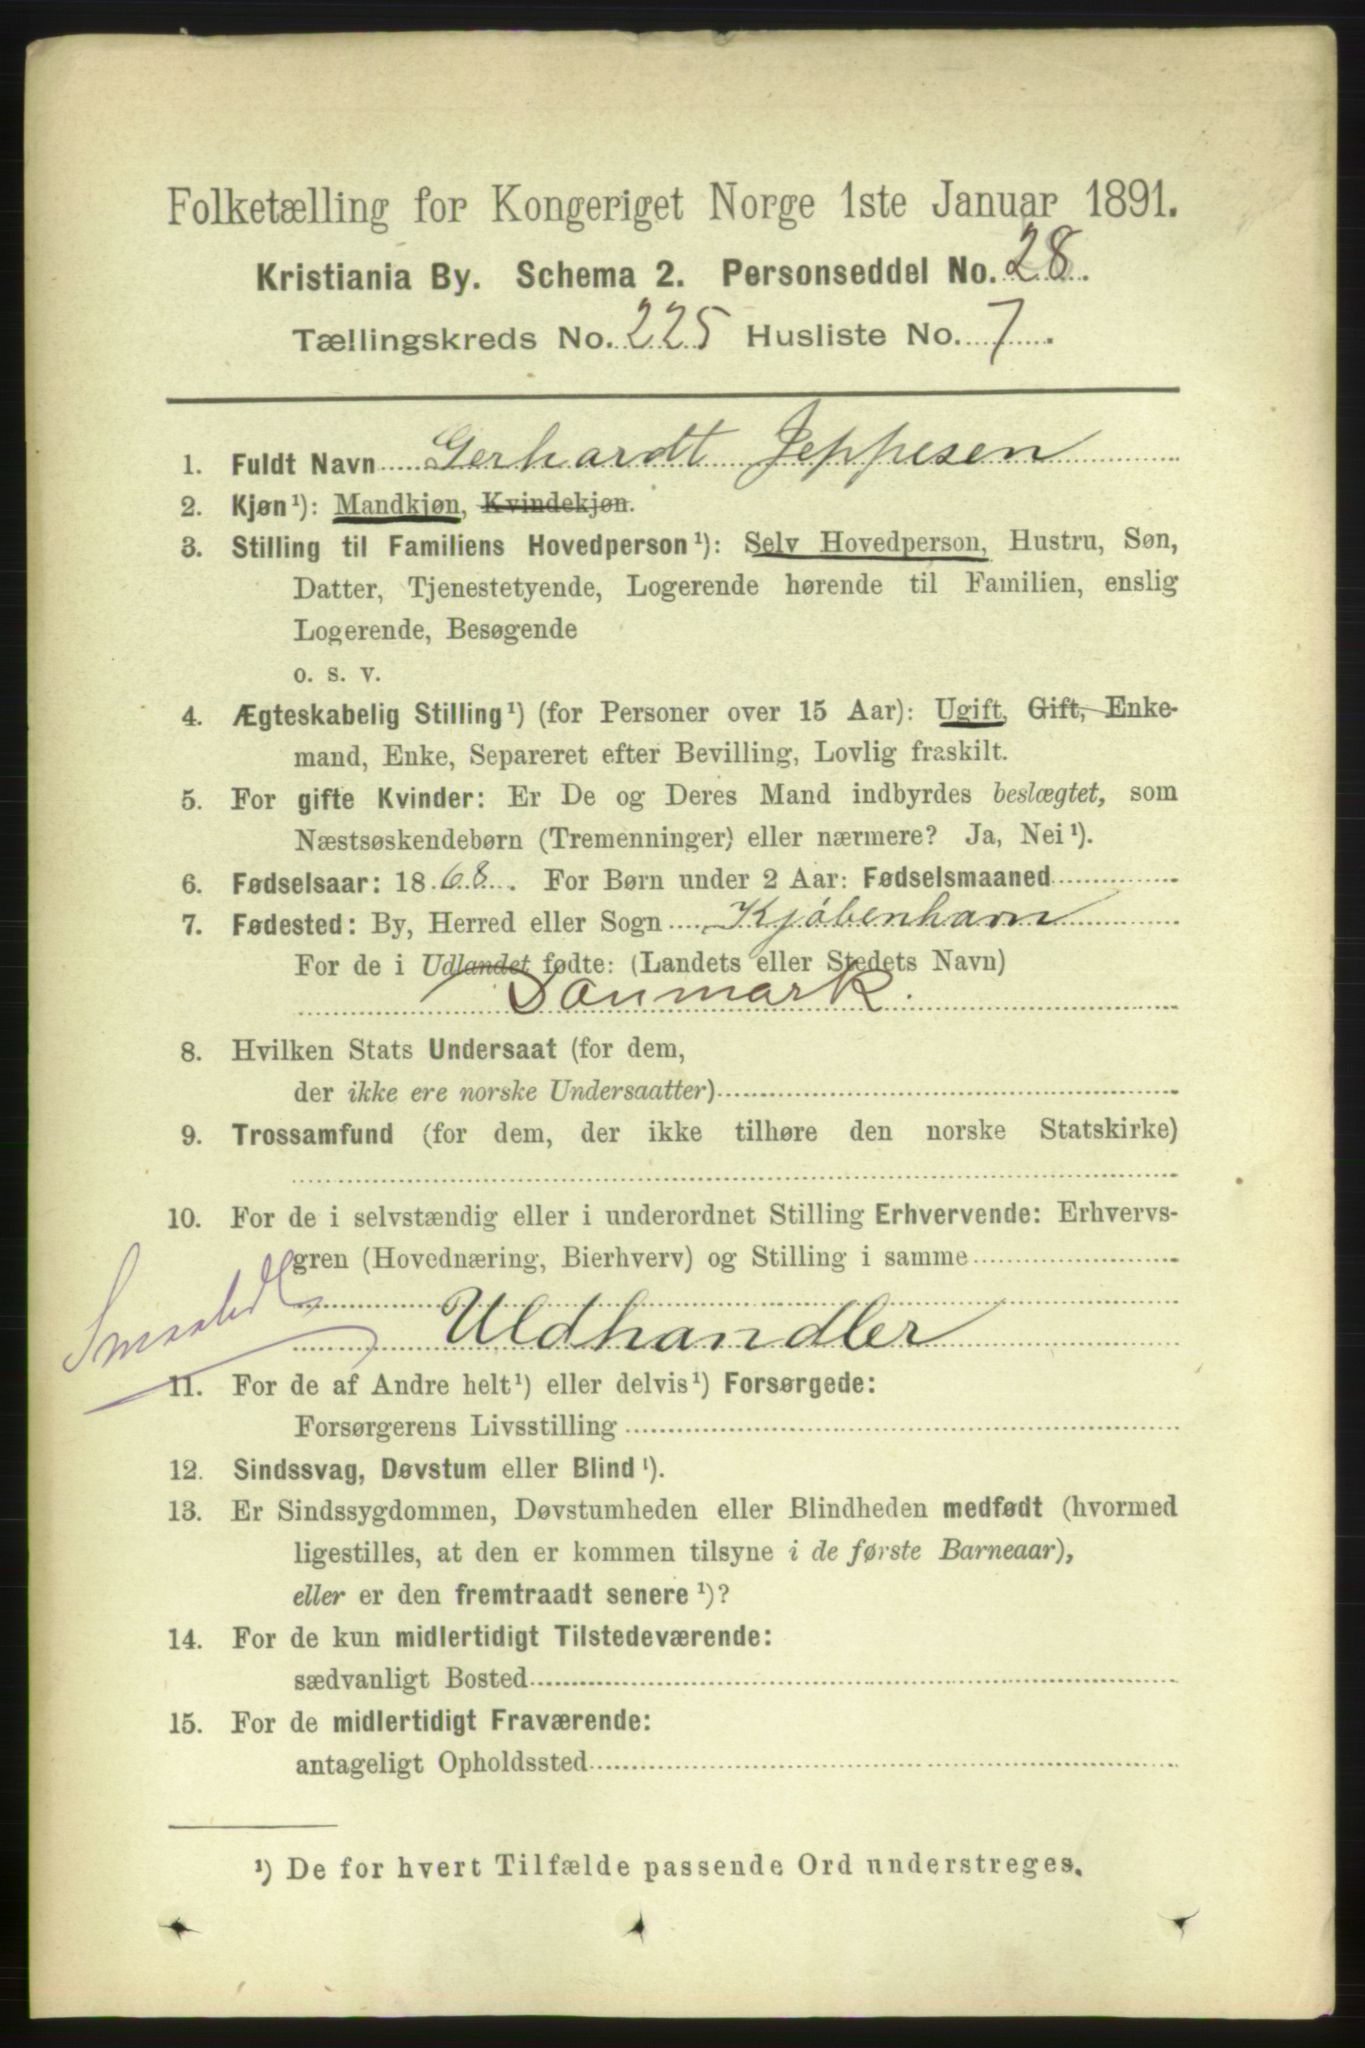 Folketælling for Kongeriget Norge 1ste Januar 1891.
Kristiania By. Schema 2. Personseddel No. 28.
Tællingskreds No. 225 Husliste No. 7.
1. Fuldt Navn Gerhardt Jeppesen
2. Kjøn¹): Mandkjøn, Kvindekjøn.
3. Stilling til Familiens Hovedperson¹): Selv Hovedperson, Hustru, Søn,
Datter, Tjenestetyende, Logerende hørende til Familien, enslig
Logerende, Besøgende
o. s. v.
4. Ægteskabelig Stilling¹) (for Personer over 15 Aar): Ugift, Gift, Enke-
mand, Enke, Separeret efter Bevilling, Lovlig fraskilt.
5. For gifte Kvinder: Er De og Deres Mand indbyrdes beslægtet, som
Næstsøskendebørn (Tremenninger) eller nærmere? Ja, Nei¹).
6. Fødselsaar: 1868. For Børn under 2 Aar: Fødselsmaaned
7. Fødested: By, Herred eller Sogn Kjøbenhavn
For de i Udlandet fødte: (Landets eller Stedets Navn)
Danmark.
8. Hvilken Stats Undersaat (for dem,
der ikke ere norske Undersaatter)
9. Trossamfund (for dem, der ikke tilhøre den norske Statskirke)
10. For de i selvstændig eller i underordnet Stilling Erhvervende: Erhvervs-
gren (Hovednæring, Bierhverv) og Stilling i samme
Uldhandler
11. For de af Andre helt¹) eller delvis¹) Forsørgede:
Forsørgerens Livsstilling
12. Sindssvag, Døvstum eller Blind¹).
13. Er Sindssygdommen, Døvstumheden eller Blindheden medfødt (hvormed
ligestilles, at den er kommen tilsyne i de første Barneaar),
eller er den fremtraadt senere¹)?
14. For de kun midlertidigt Tilstedeværende:
sædvanligt Bosted
15. For de midlertidigt Fraværende:
antageligt Opholdssted
¹) De for hvert Tilfælde passende Ord understreges.